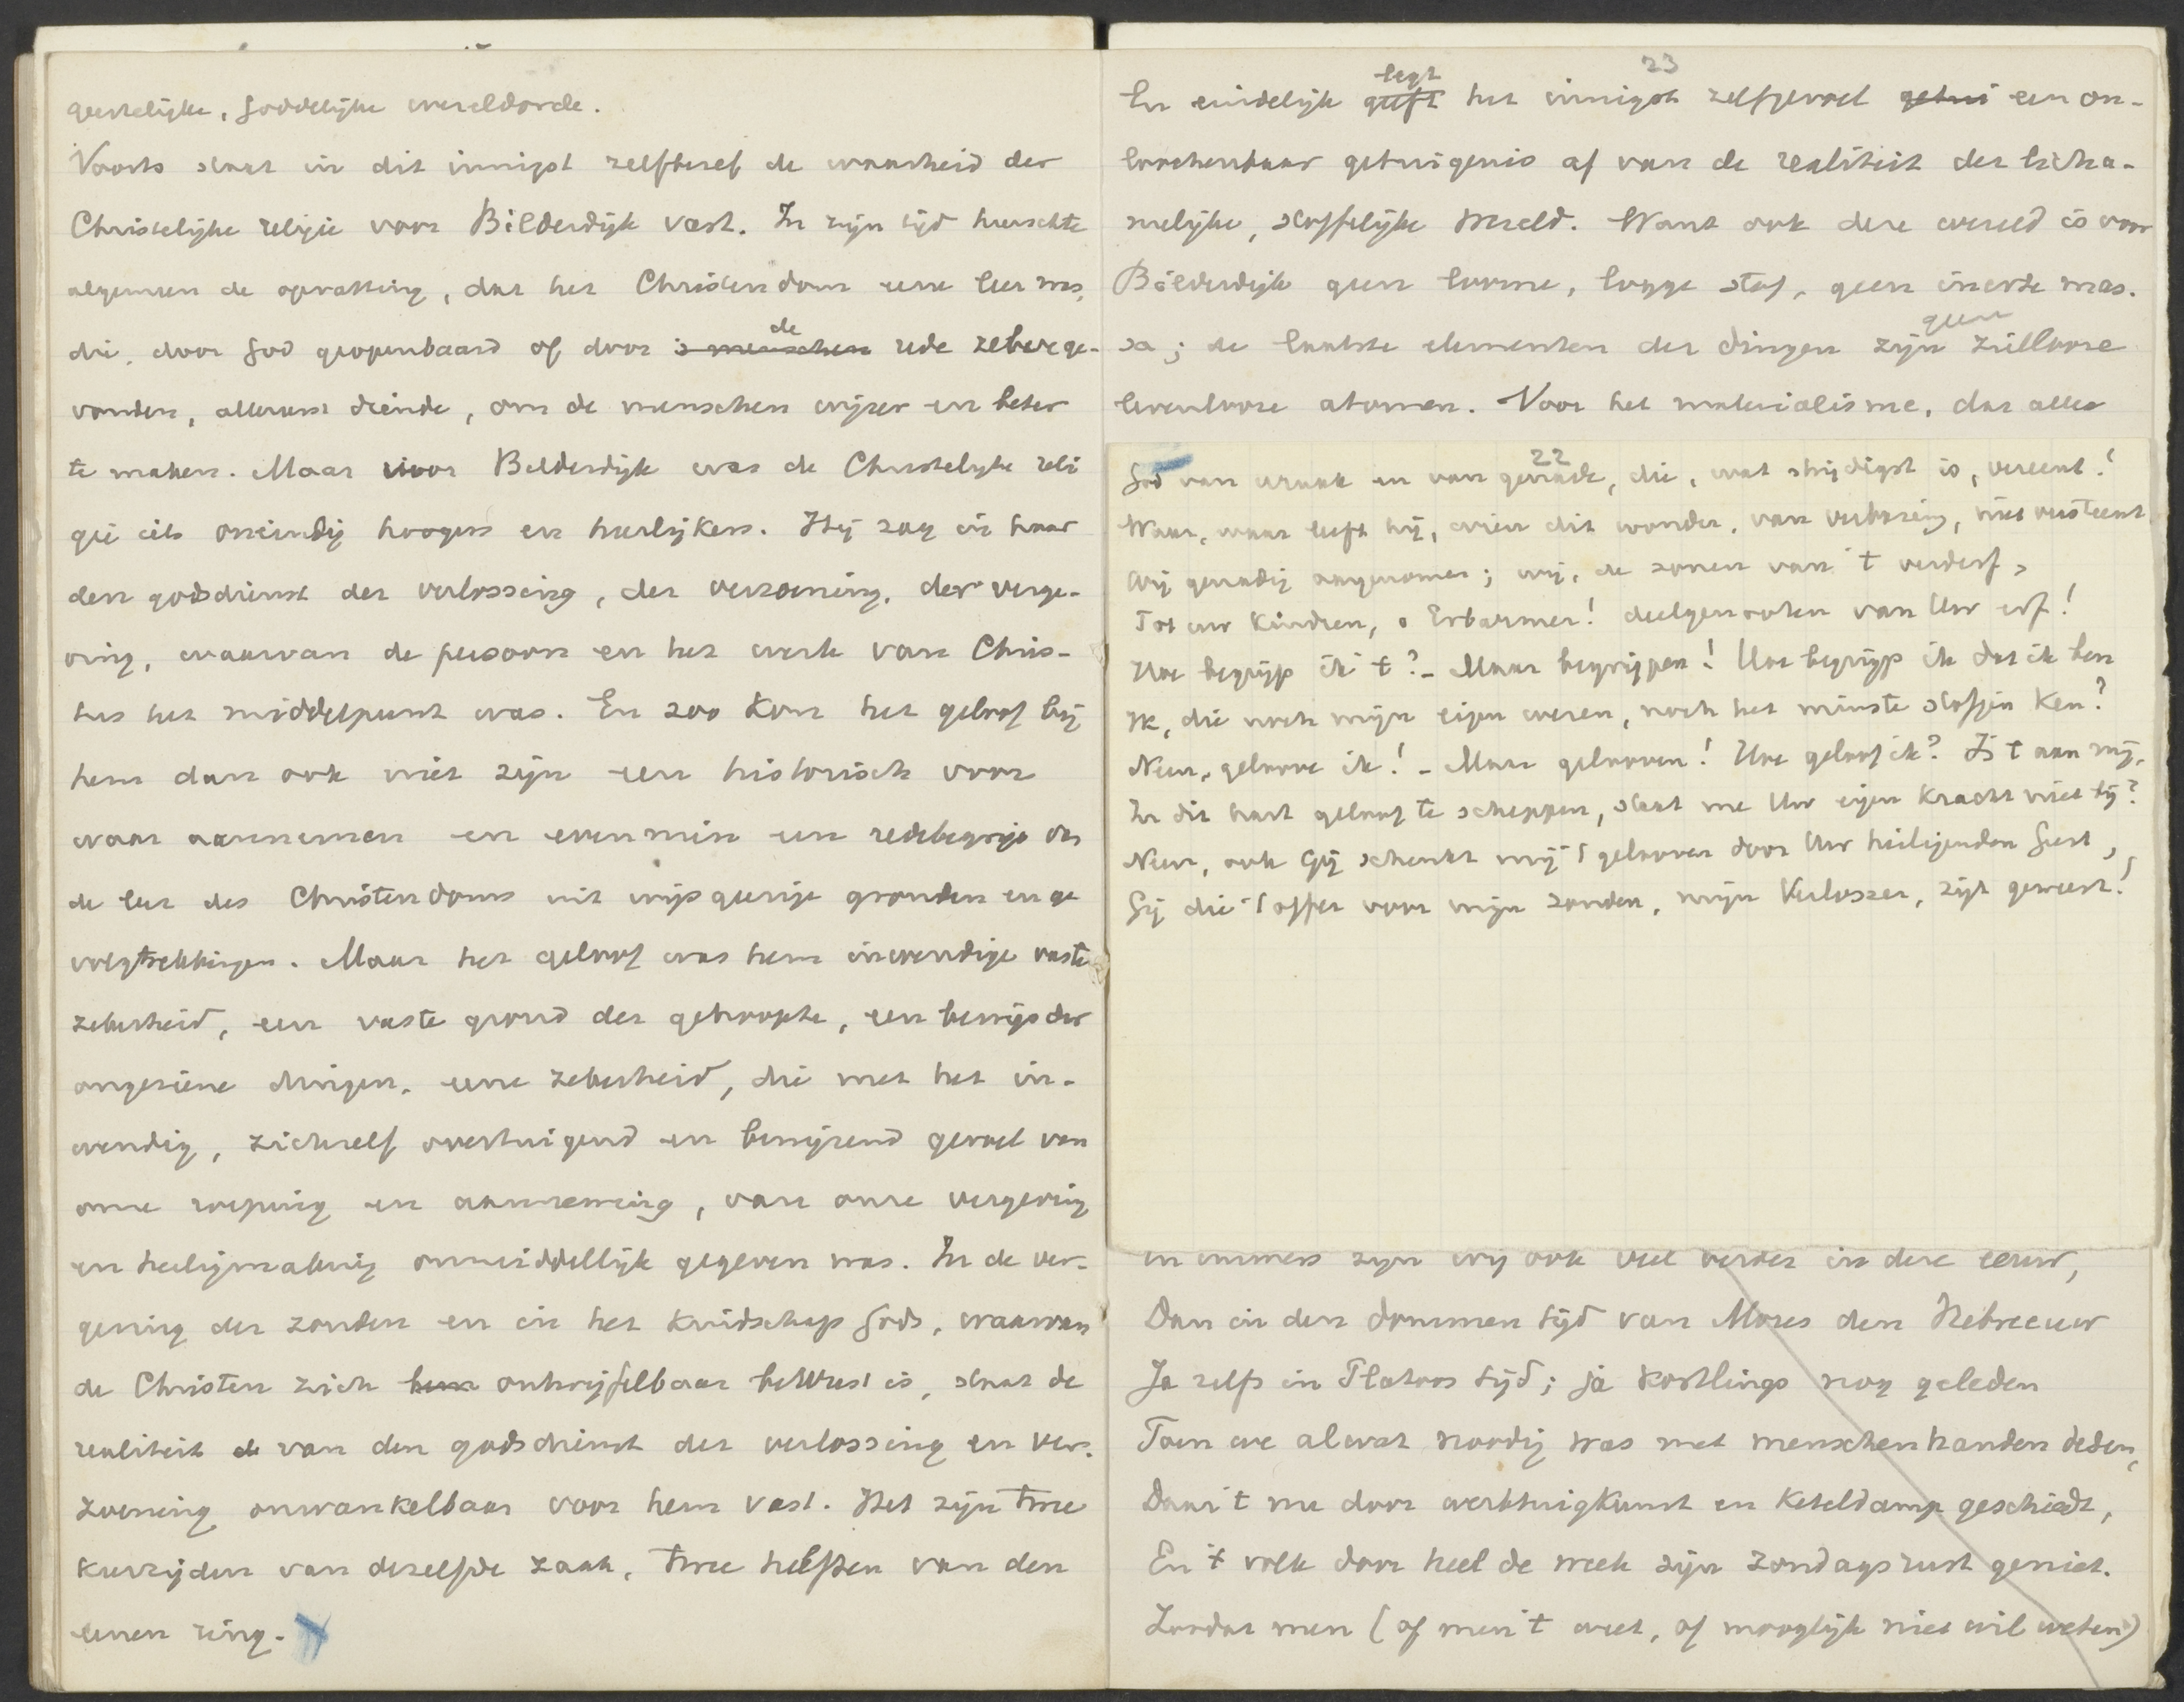 geestelijke, goddelijke wereldorde.
Voorts staat in dit innigst zelfbesef de waarheid der
Christelijke religie voor Bilderdijk vast. In zijn tijd heerschte
algemeen de opvatting, dat het Christendom eene leer was,
die, door God geopenbaard of door 's menschen de rede zeber ge-
vonden, allereerst diende, om de menschen wijzer en beter
te maken. Maar voor Bilderdijk was de Christelijke reli
gie iets oneindig hoogers en heerlijkers. Hij zag in haar
den godsdienst der verlossing, der verzoening, der verge-
ving, waarvan de persoon en het werk van Chris-
tus het middelpunt was. En zoo kon het geloof bij
hem dan ook niet zijn een historisch voor
waar aannemen en evenmin een redebegrip van
de leer des Christendoms uit wijsgeerige gronden en ge
volgtrekkingen. Maar het geloof was hem inwendige vaste
zekerheid, een vaste grond der gehoopte, een bewijs der
ongeziene dingen, eene zekerheid, die met het in-
wendig, zichzelf overtuigend en bewijzend gevoel van
onze roeping en aanneming, van onze vergeving
en heiligmaking onmiddellijk gegeven was. In de ver-
geving der zonden en in het kindschap Gods, waarvan
de Christen zich hem ontwijfelbaar bewust is, staat de
realiteit de van den godsdienst der verlossing en ver-
zoening onwankelbaar voor hem vast. Het zijn twee
keerzijden van dezelfde zaak, twee helften van den
eenen ring.
23
En eindelijk geeft legt het innigst zelfgevoel getui een on-
loochenbaar getuigenis af van de realiteit der licha-
melijke, stoffelijke wereld. Want ook deze wereld is voor
Bilderdijk geen loome, logge stof, geen inerte mas-
sa; de laatste elementen der dingen zijn geen zielloose
levenlooze atomen. Voor het materialisme, dat alles
22
God van wraak en van genade, die, wat strijdigst is, vereent!
Waar, waar leeft hij, wien dit wonder, van verbazing, niet versteent
Wij genadig aangenomen; wij, de zonen van 't verderf,
Tot uw Kindren, o Erbarmer! deelgenooten van Uw erf!
Hoe begrijp ik 't? - Maar begrijpen! Hoe begrijp ik dat ik ben
Ik, die noch mijn eigen wezen, noch het minste stofjen ken?
Neen, geloove ik! - Maar gelooven! Hoe geloof ik? Is 't aan mij,
In dit hart geloof te scheppen, staat me Uw eigen kracht niet bij?
Neen, ook Gij schenkt mij 't gelooven door Uw heiligenden Geest,
Gij die 't offer voor mijn zonden, mijn Verlosser, zijt geweest!
en immers zijn wij ook veel verder in deze eeuw,
Dan in den dommen tijd van Mozes den Hebreeuw
Ja zelfs in Platoos tijd; ja kortlings nog geleden
Toen we alwat noodig was met menschenhanden deden,
Daar 't nu door werktuigkunst en keteldamp geschiedt,
En 't volk door heel de week zijn zondagsrust geniet.
Zoodat men (of men 't weet, of mooglijk niet wil weten)